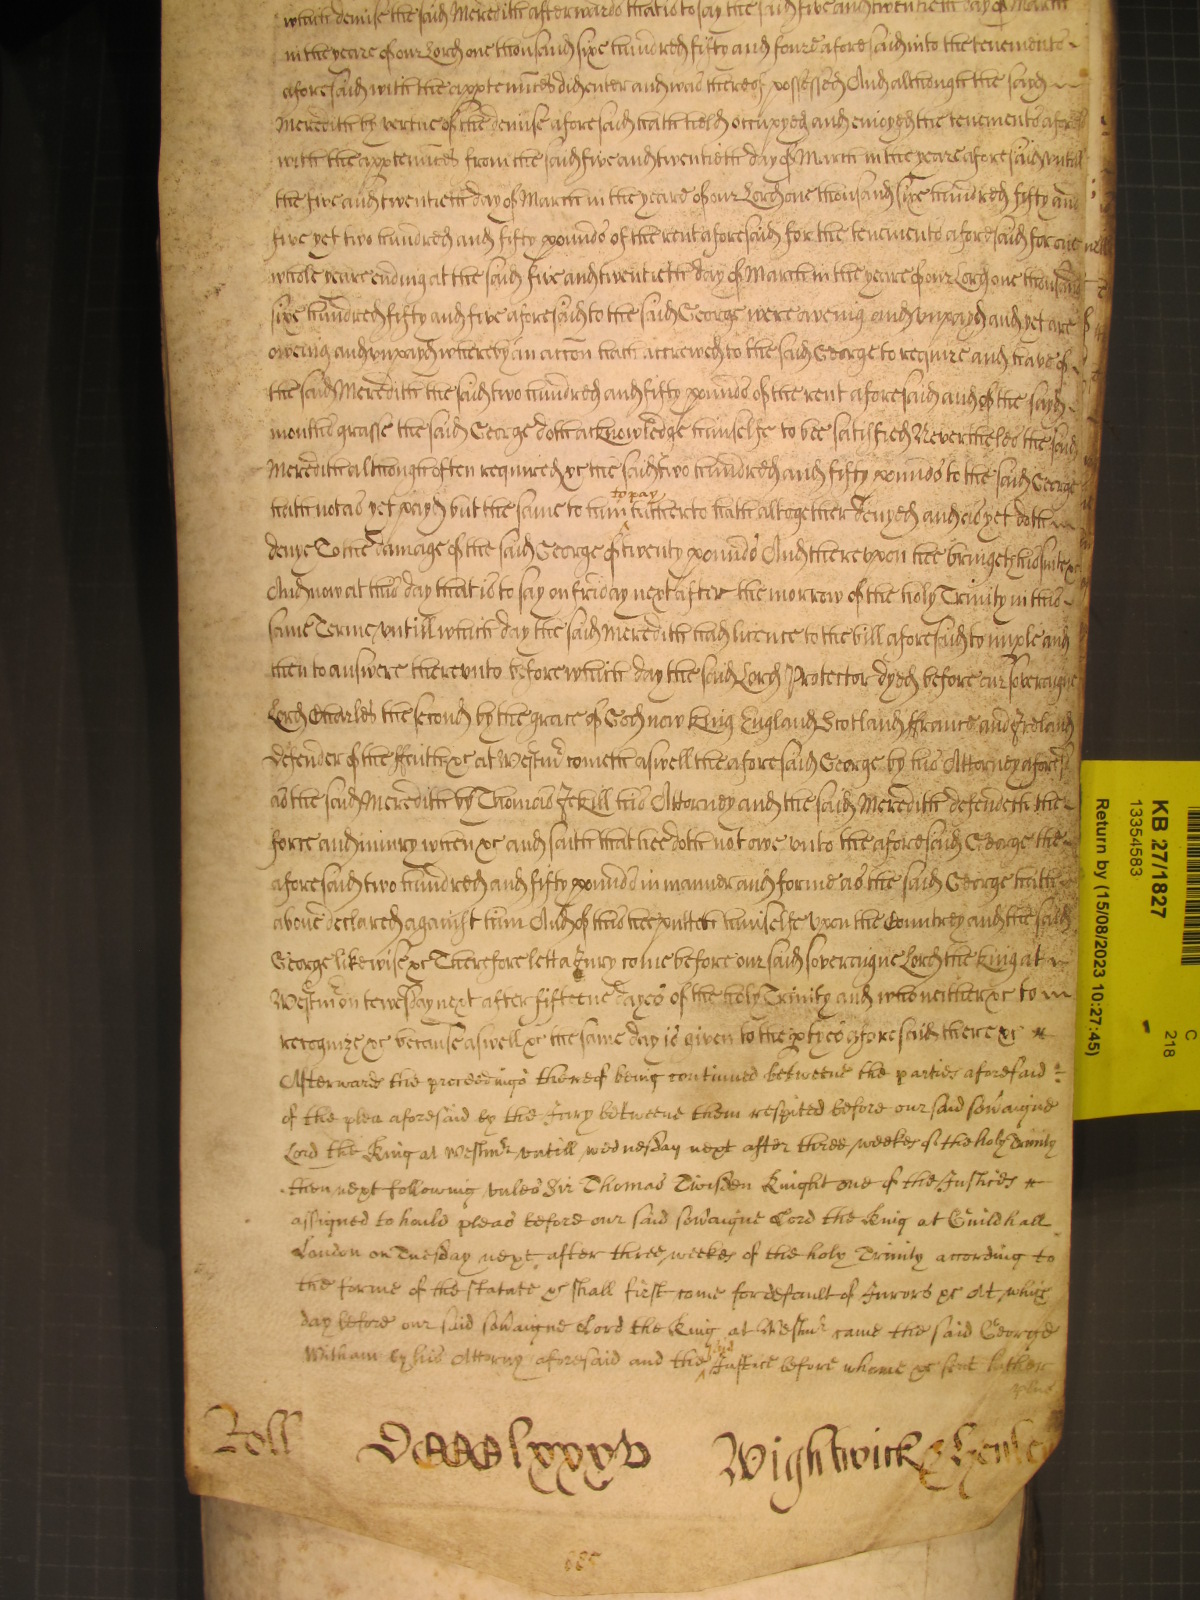 which demise the said Meredith afterwards that is to say the said five and twentieth day of March
in the yeare of our Lord one thousand sixe hundred fifty and foure aforesaid into the tenements
aforesaid with the apptenñces did enter and was thereof possessed And although the sayd
Meredith by vertue of the demise aforesaid hath held occupyed and enioyed the tenements aforesd
with the apptenñces from the said five and twentieth day of March in the yeare aforesaid untill
the five and twentieth day of March in the yeare of our Lord one thousand sixe hundred fifty and
five yet two hundred and fifty pounds of the rent aforesaid for the tenements aforesaid for one
whole yeare ending at the said five and twentieth day of March in the yeare of our Lord one thousand
sixe hundred fifty and five aforesaid to the said George were oweing and unpayd and yet are
oweing and unpayd whereby an accõn hath accrewed to the said George to require and have of
the said Meredith the said two hundred and fifty pounds of the rent aforesaid and of the sayd
months grasse the said George doth acknowledge himselfe to bee satisfied Neverthelesse the said
Meredith although often required &c the said two hundred and fifty pounds to the said George
to pay
hath not as yet payd but the same to him hitherto hath altogether denyed and as yet doth
denye To the damage of the said George of twenty pounds And thereupon hee bringeth his suite &c
And now at this day that is to say on friday next after the morrow of the holy Trinity in this
same Terme untill which day the said Meredith had licence to the bill aforesaid to imple and
then to answere thereunto before which day the said Lord Protector dyed before our soveraigne
Lord Charles the second by the grace of God now King England Scotland ffrance and Ireland
defender of the ffaith &c at Westmr cometh aswell the aforesaid George by his Attorney aforesd
as the said Meredith by Thomas Jekill his Attorney and the said Meredith defendeth the
force and iniury when &c and saith that hee doth not owe unto the aforesaid George the
aforesaid two hundred and fifty pounds in manner and forme as the said George hath
above declared against him And of this hee putteth himselfe upon the Countrey and the said
George likewise &c Therefore lett a Jury come before our said soveraigne Lord the King at
Westmr on tewesday next after fifteene dayes of the holy Trinity and who neither &c to
recognize &c because aswell &c the same day is given to the ptyes aforesaid there &c
Afterwards the proceedings thereof being continued betweene the parties aforesaid
of the plea aforesaid by the Jury betweene them respited before our said sovaigne
Lord the King at Westmr untill wednesday next after three weekes of the holy Trinity
then next following unles Sir Thomas Twisden Knight one of the Justices
assigned to hould pleas before our said sovaigne Lord the King at Guildhall
London on Tuesday next after three weekes of the holy Trinity according to
the forme of the statute &c shall first come for default of Jurors &c At which
day before our said sovaigne Lord the King at Westmr came the said George
Witham by his Attorny aforesaid and the said Justice before whome &c sent hither
Roll DCCCClxxxv Wightwick &
985
KB 27/1827
13354583
Return by (15/08/2023 10:27:45)
C
218